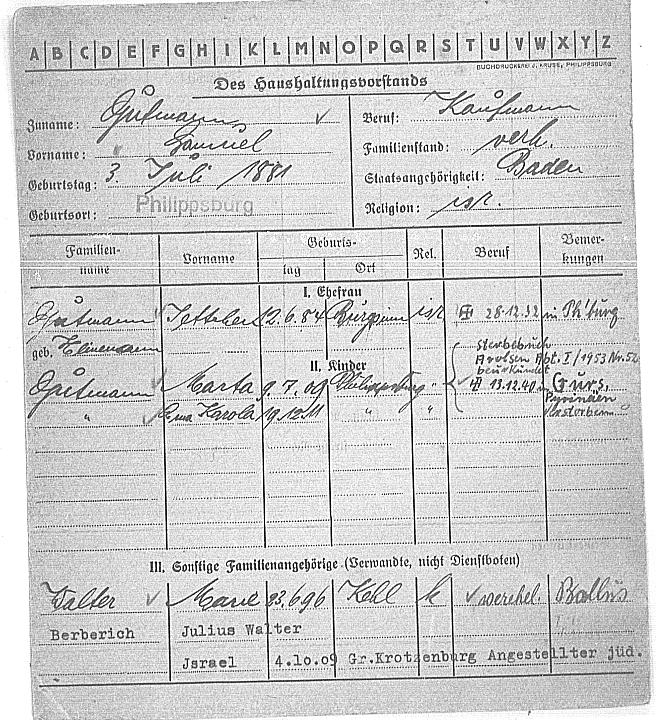 A B C D E F G H I K L M N O P Q R S T U V W X Y Z
BUCHDRUCKEREI J. KRUSE, PHILIPPSBURG
Des Haushaltungsvorstands
Zuname: Gutmann
Vorname: Samuel
Geburtstag: 3. Juli 1881
Geburtsort: Philippsburg
Beruf: Kaufmann
Familienstand: verh.
Staatsangehörigkeit: Baden
Religion: isr.
Familienname Vorname Geburts- tag Ort Rel. Beruf Bemerkungen
I. Ehefrau
Gutmann 12.6.84 isr 28.12.32 in Ph'burg
geb. Heinemann
II. Kinder
Arolsen Abt. I/1953 Nr. 52
Gutmann Marta 9.7.09 Philippsburg " 13.12.40 in Gurs,
Pyrenäen
" Karola 19.12.11 " "
III. Sonstige Familienangehörige (Verwandte, nicht Dienstboten)
Walter Marie 23.6.96 Kehl k
Berberich Julius Walter
Jsrael 4.10.09 Gr.Krotzenburg Angestellter jüd.